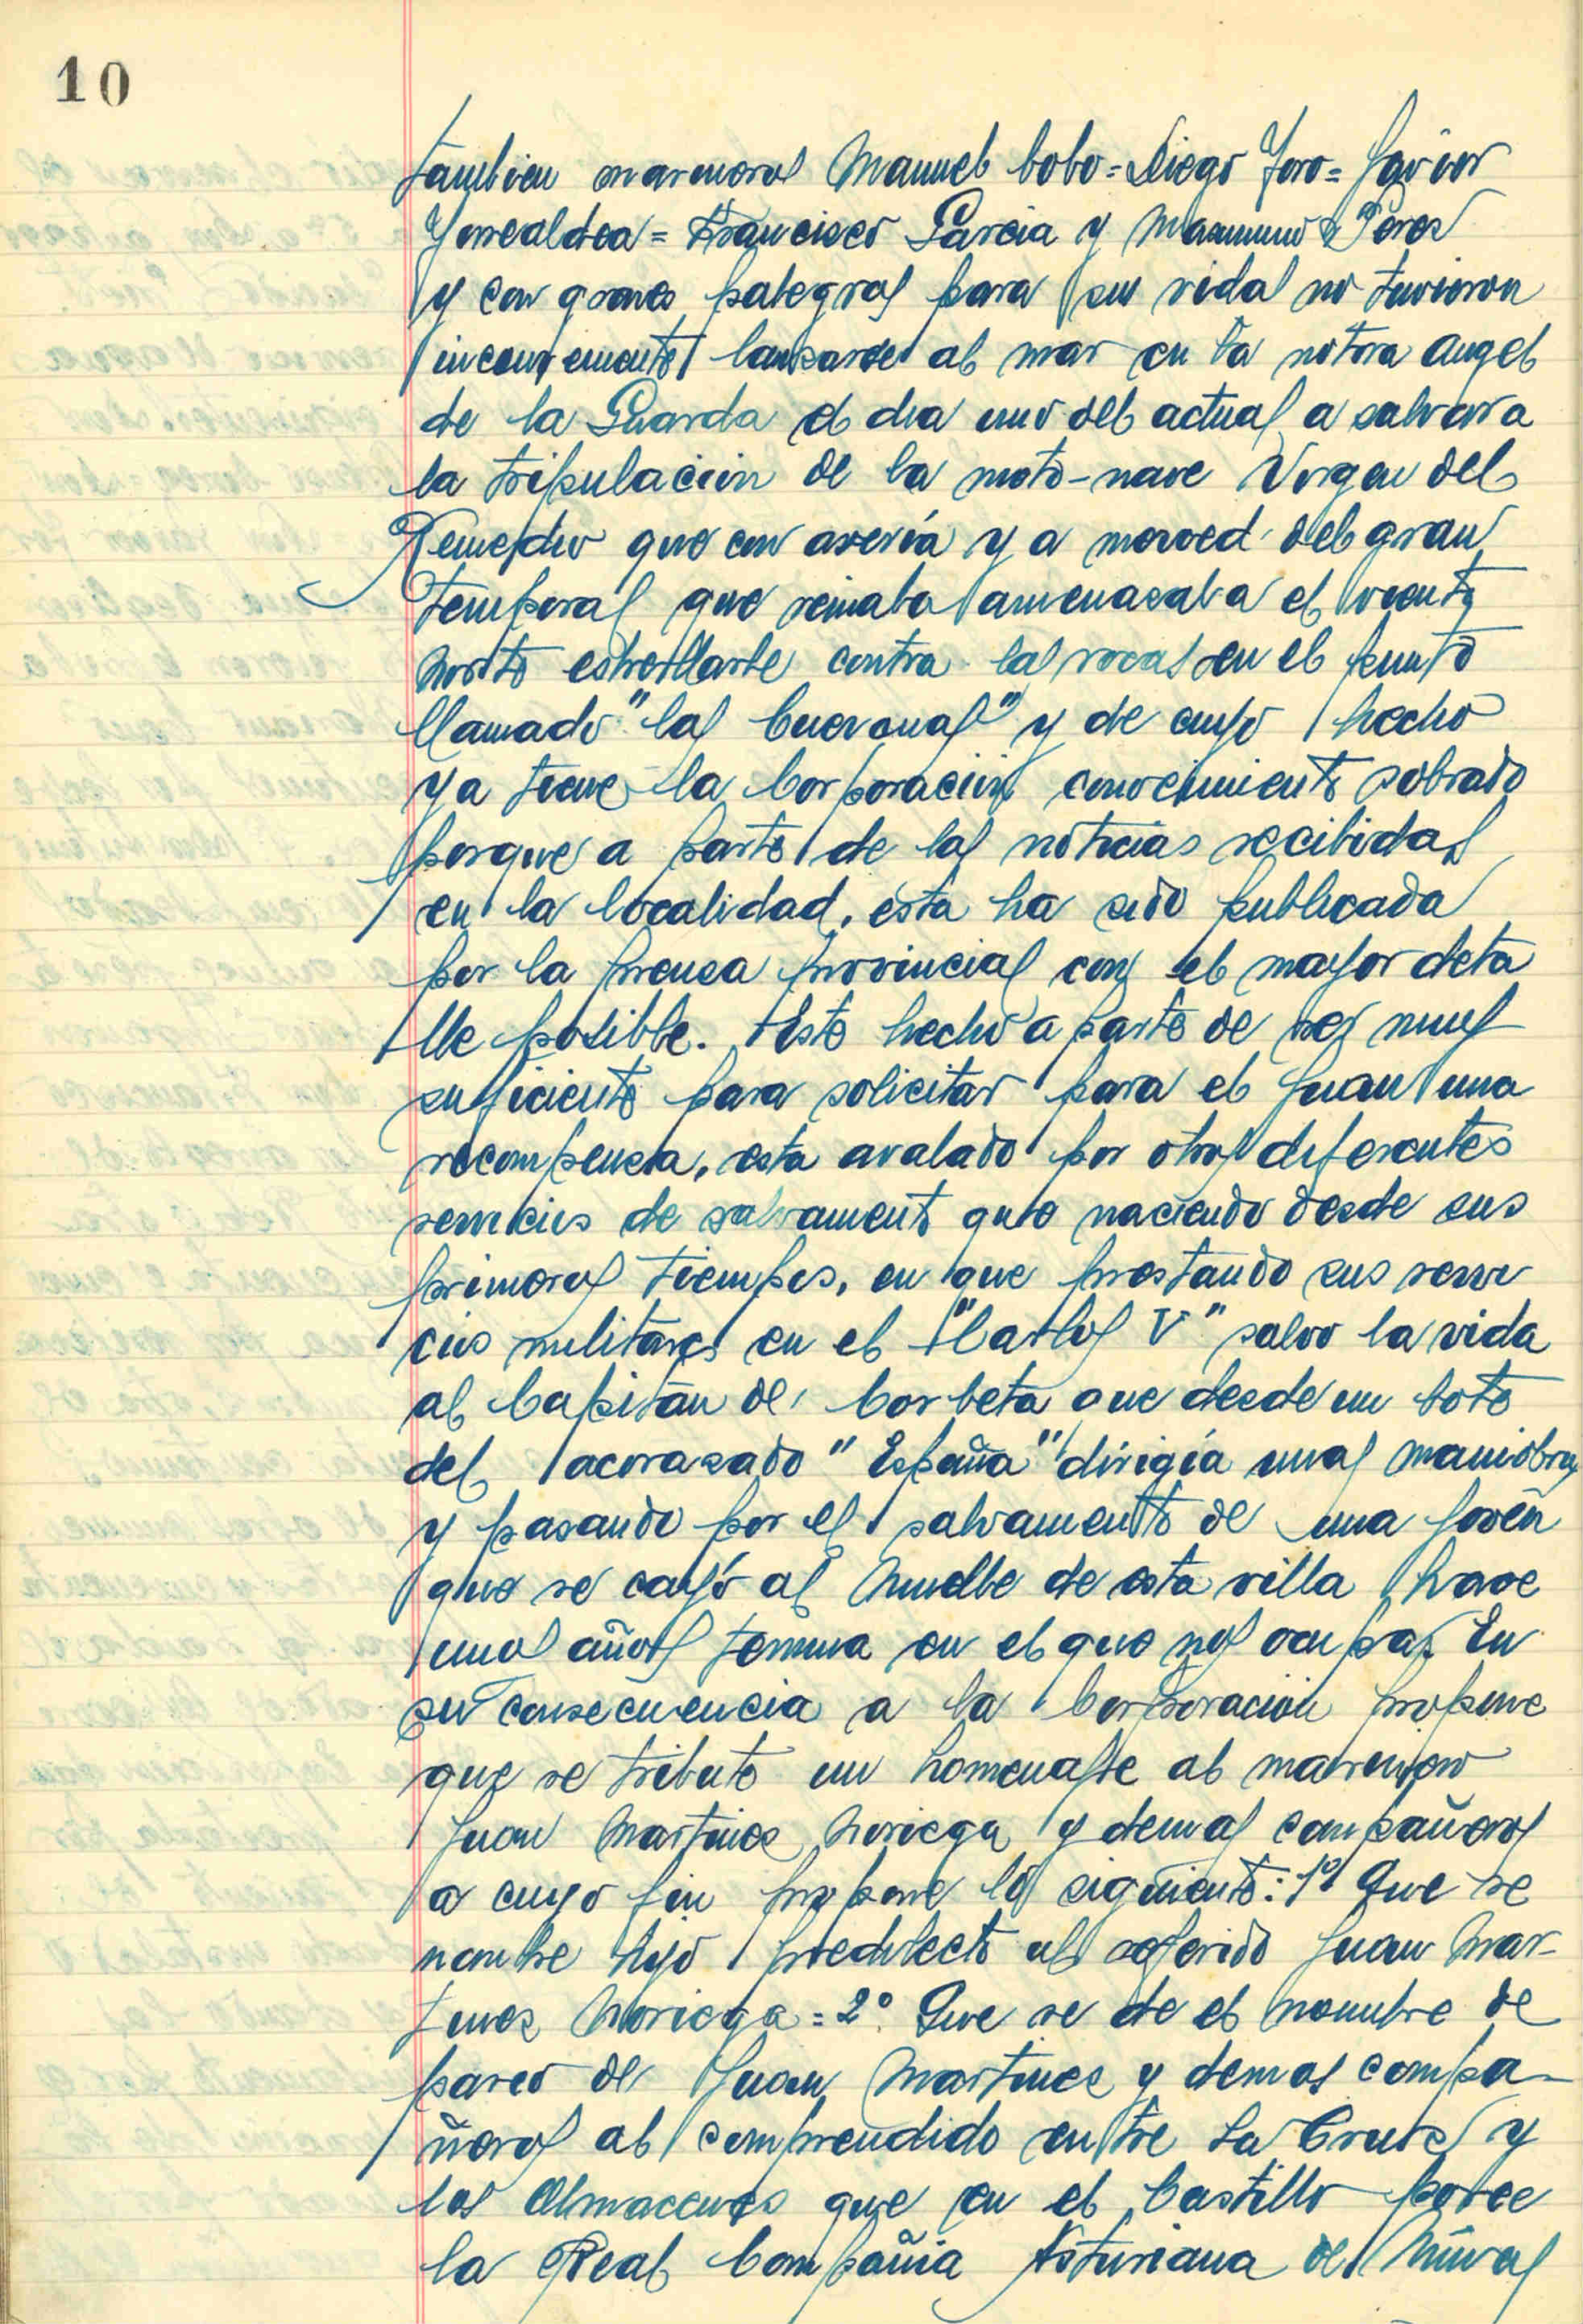 10
tambien marineros Manuel Cobo = Diego Toro = Javier
Torrealdea = Francisco Garcia y Maximino Perez
y con graves peligros para su vida no tuvieron
inconveniente lanzarse al mar en la motora Angel
de la Guarda el dia uno del actual a salvar a
la tripulación de la moto-nave Virgen del
Remedio que con avería y a merced del gran
temporal que reinaba amenazaba el viento
norte estrellarle contra las rocas en el punto
llamado "las Cuevonas" y de cuyo hecho
ya tiene la Corporación conocimiento sobrado
porque a parte de las noticias recibidas
en la localidad, esta ha sido publicada
por la prensa provincial con el mayor deta
lle posible. Este hecho a parte de ser muy
suficiente para solicitar para el Juan una
recompensa, esta avalado por otros diferentes
servicios de salvamento que naciendo desde sus
primeros tiempos, en que prestando sus servi
cios militares en el "Carlos V" salvo la vida
al Capitán de Corbeta que desde un bote
del acorazado "España" dirigía unas maniobras
y pasando por el salvamento de una joven
que se cayó al muelle de esta villa hace
unos años termina en el que nos ocupa. En
su consecuencia a la Corporación propone
que se tribute un homenaje al marinero
Juan Martinez Noriega y demas compañeros
a cuyo fin propone lo siguiente: 1º Que se
nombre hijo predilecto al referido Juan Mar-
tinez Noriega = 2º Que se de el nombre de
paseo de Juan Martinez y demas compa-
ñeros al comprendido entre La Cruz y
los Almacenes que en el Castillo posee
la Real Compañia Asturiana de Minas